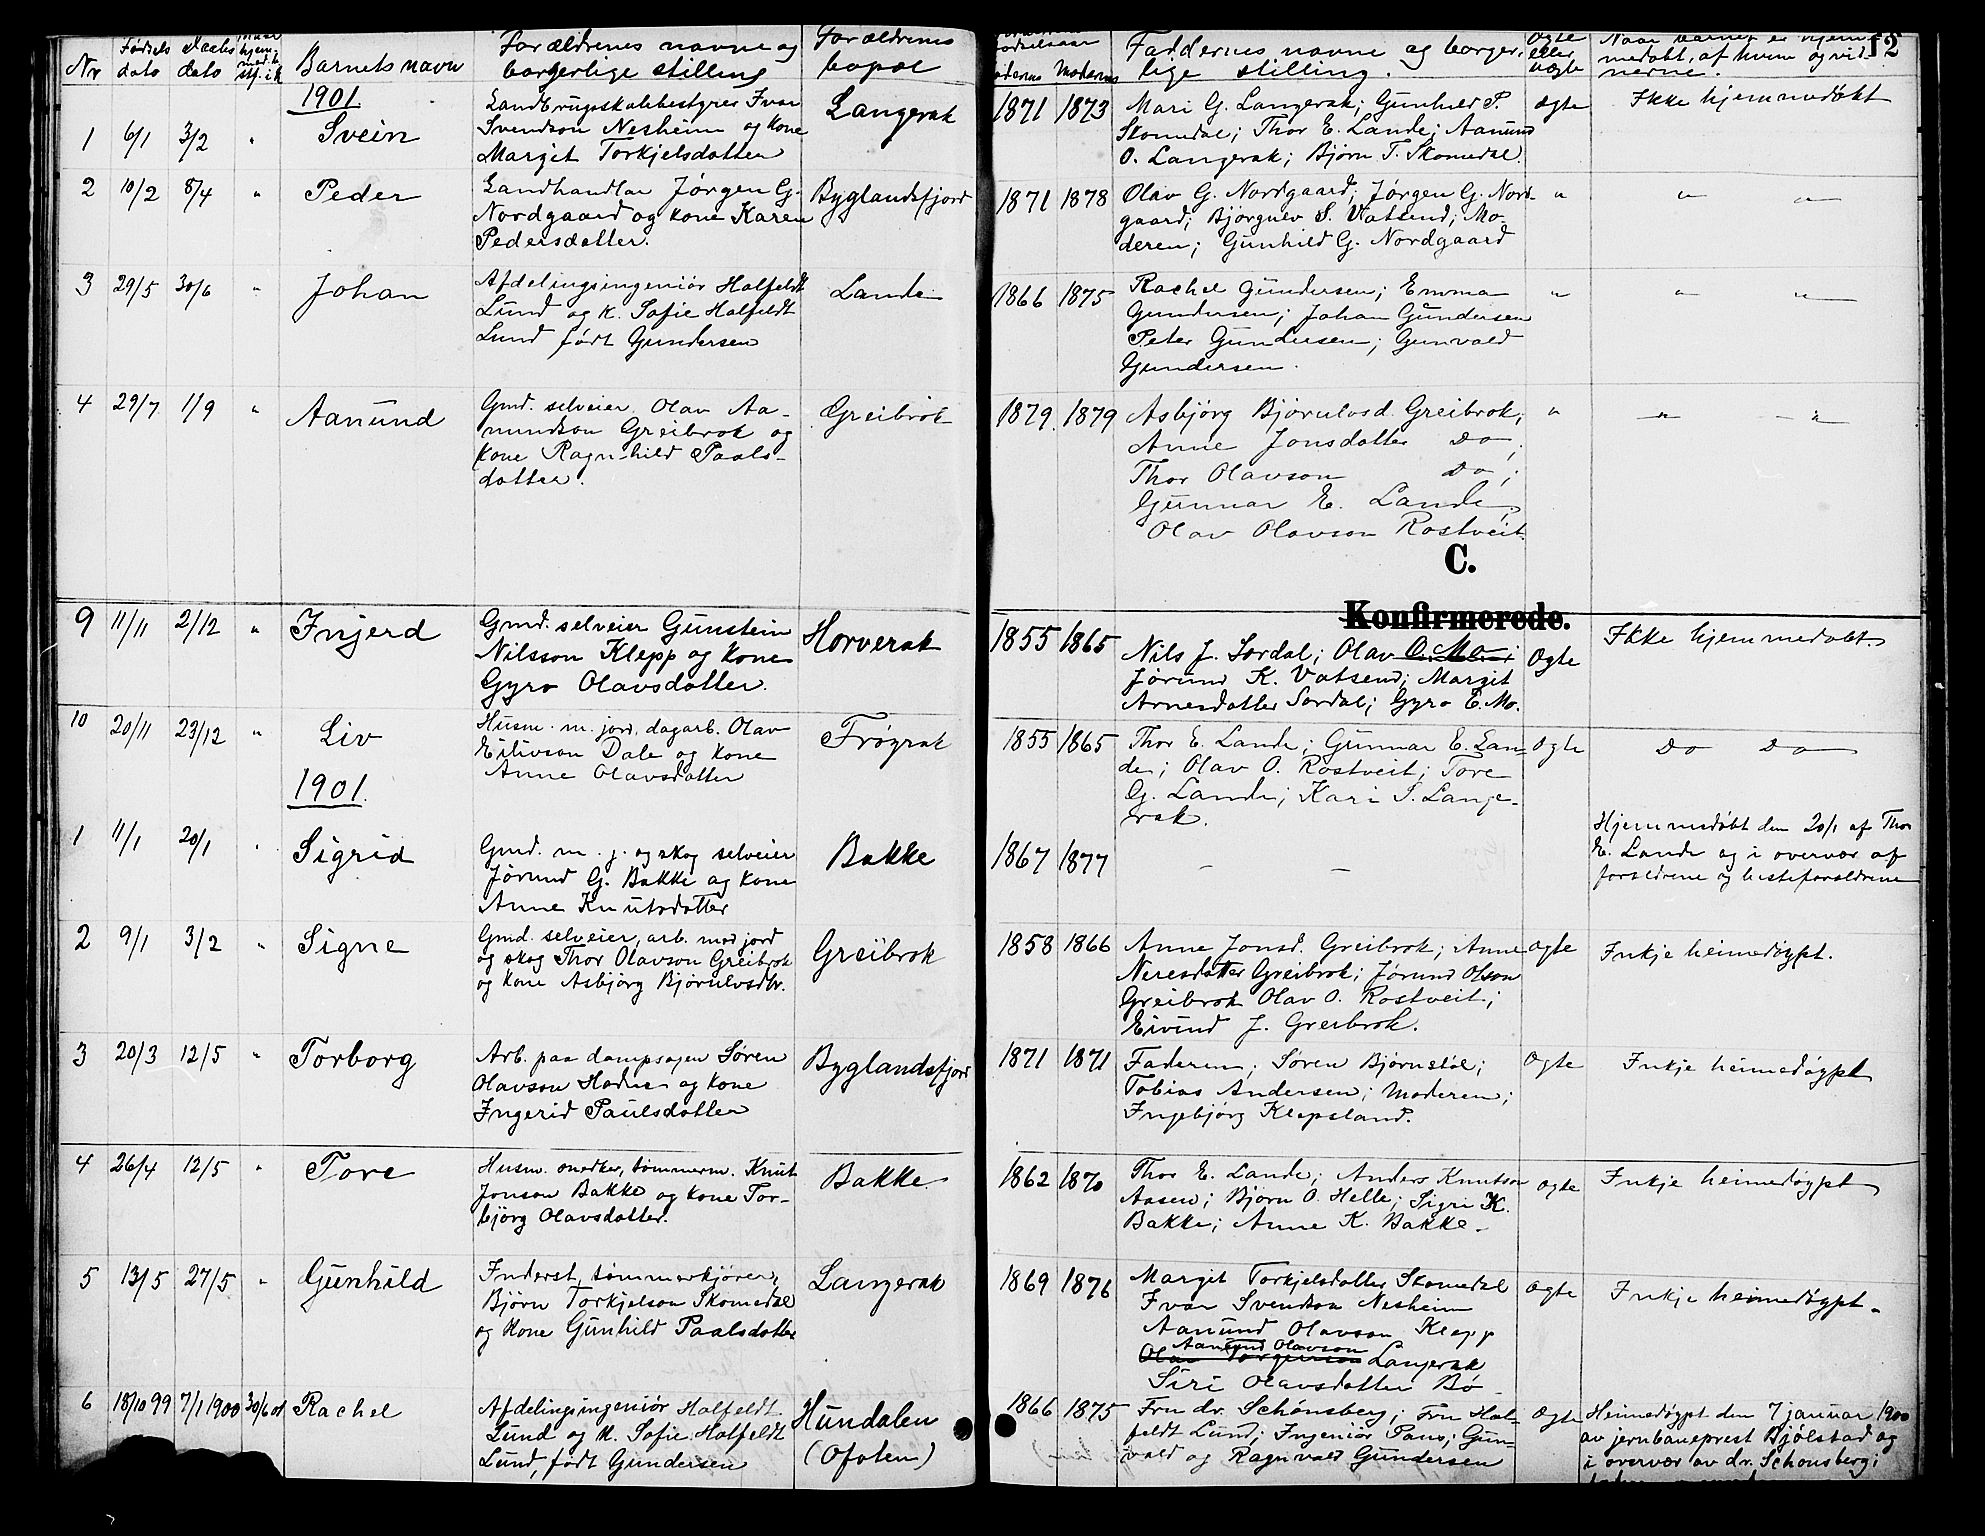 12
Nr Fødsels dato Daabs dato Barnets navn Forældrenes navne og borgerlige stilling Forældrenes bopæl Moderens Faddernes navne og borgerlige stilling. Ægte eller uægte Naar barnet er hjemmedøbt, af hvem og vidnerne.
1901
1 6/1 3/2 " Svein
Landbrugsskolebestyrer Ivar
Svendson Nesheim og kone
Margit Torkjelsdatter
Langerak
1871 1873
Mari G. Langerak; Gunhild P.
Skomedal; Thor E. Lande; Aanund
O. Langerak; Bjørn T. Skomedal.
Ægte
Ikke hjemmedøbt
2 10/2 8/4 " Peder
Landhandlar Jørgen G.
Nordgaard og kone Karen
Pedersdatter.
Byglandsfjord
1871 1878
Olav G. Nordgaard; Jørgen G. Nord-
gaard; Bjørgulv S. Vatsend; Mo-
deren; Gunhild G. Nordgaard
" " "
3 29/5 30/6 " Johan
Afdelingsingeniør Halfeldt
Lund og k. Sofie Halfeldt
Lund født Gundersen
Lande
1866 1875
Rachel Gundersen; Emma
Gundersen; Johan Gundersen
Peter Gundersen; Gunvald
Gundersen.
" " "
4 29/7 1/9 " Aanund
Gmd. selveier Olav Aa-
nundson Greibrok og
kone Ragnhild Paals-
datter.
Greibrok
1879. 1879
Asbjørg Bjørnulvsd. Greibrok;
Anne Jonsdatter Do;
Thor Olavson Do;
Gunnar E. Lande;
Olav Olavson Rostveit.
" " "
C.
Konfirmerede.
9 11/11 2/12 " Injerd
Gmd. selveier Gunstein
Nilsson Klepp og kone
Gyro Olavsdatter.
Horverak
1855 1865
Nils J. Sordal; Olav O. Mo;
Jørund K. Vatsend; Margit
Arnesdatter Sordal; Gyro E. Mo.
Ægte
Ikke hjemmedøbt.
10 20/11 23/12 " Liv
Husm. m. jord, dagarb. Olav
Eilivson Dale og kone
Anne Olavsdatter
Frøyrak
1855 1865
Thor E. Lande; Gunnar E. Lan-
de; Olav O. Rostveit; Tore
G. Lande; Kari S. Lange-
rak.
Ægte
Do Do
1901.
1 11/1 20/1 " Sigrid
Gmd. m. j. og skog selveier
Jørund G. Bakke og kone
Anne Knutsdatter
Bakke
1867 1877
- -
Hjemmedøbt den 20/1 af Thor
E. Lande og i overvær af
forældrene og besteforældrene
2 9/1 3/2 " Signe
Gmd. selveier, arb. med jord
og skog Thor Olavson Greibrok
og kone Asbjørg Bjørnulvsdtr.
Greibrok
1858 1866
Anne Jonsd. Greibrok; Anne
Neresdatter Greibrok; Jørund Olson
Greibrok Olav O. Rostveit;
Eivind J. Greibrok.
Ægte
Inkje heimedøypt.
3 20/3 12/5 " Torborg
Arb. paa dampsagen Søren
Olavson Hodne og kone
Ingerid Paulsdatter
Byglandsfjord
1871 1871
Faderen; Søren Bjørnstøl;
Tobias Andersen; Moderen;
Ingebjørg Klepsland.
Ægte
Inkje heimedøypt
4 26/4 12/5 " Tore
Husm. snedker, tømmerm. Knut
Jonson Bakke og kone Tor-
bjørg Olavsdatter.
Bakke
1862 1870
Thor E. Lande; Anders Knutson
Aasen; Bjørn O. Helle; Sigri K.
Bakke; Anne K. Bakke.
Ægte
Inkje heimedøypt
5 13/5 27/5 " Gunhild
Inderst, tømmerkjører,
Bjørn Torkjelson Skomedal
og kone Gunhild Paalsdatter
Langerak
1869 1876
Margit Torkjelsdatter Skomedal
Ivar Svendson Nesheim
Aanund Olavson Klepp
Aanund Olavson
Olav Torgerson Langerak
Siri Olavsdatter Bø
Ægte
Inkje heimedøypt.
6 18/10 99 7/1 1900 30/6 01 Rachel
Afdelingsingeniør Halfeldt
Lund og k. Sofie Halfeldt
Lund, født Gundersen
Hundalen
(Ofoten)
1866 1875
Fru dr. Schönsberg; Fru Hal-
feldt Lund; Ingeniør Paus; Gun-
vald og Ragnvald Gundersen
Ægte
Heimedøypt den 7 januar 1900
av jernbaneprest Bjølstad og
i overvær av dr. Schönsberg;